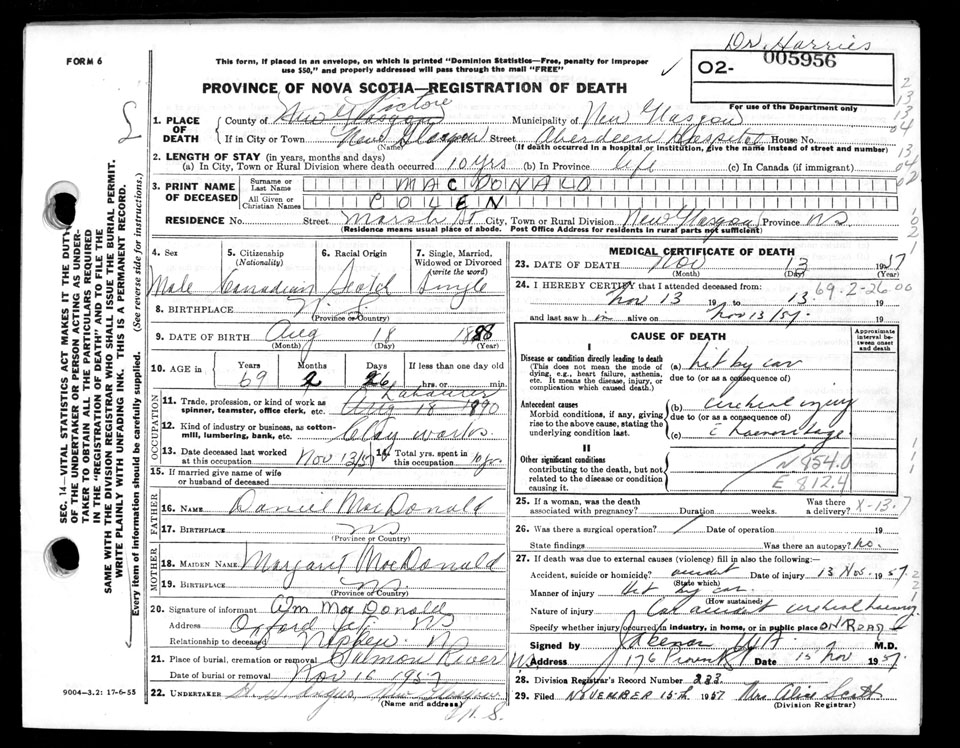 Dr. Harries
FORM 6
This form, if placed in an envelope, on which is printed "Dominion Statistics—Free, penalty for improper
use $50," and properly addressed will pass through the mail "FREE"
02- 005956
For use of the Department only
PROVINCE OF NOVA SCOTIA—REGISTRATION OF DEATH
1. PLACE OF DEATH
County of New Glasgow Pictou Municipality of New Glasgow
If in City or Town New Glasgow Street Aberdeen Hospital House No.
(Name) (If death occurred in a hospital or institution, give the name instead of street and number)
2. LENGTH OF STAY (in years, months and days)
(a) In City, Town or Rural Division where death occurred 10 yrs (b) In Province life (c) In Canada (if immigrant)
3. PRINT NAME OF DECEASED
Surname or Last Name MAC DONALD
All Given or Christian Names
RESIDENCE No. Street Marsh St City, Town or Rural Division New Glasgow Province NS
(Residence means usual place of abode. Post Office Address for residents in rural parts not sufficient)
4. Sex 5. Citizenship (Nationality) 6. Racial Origin 7. Single, Married, Widowed or Divorced (write the word)
Male Canadian Scotch Single
8. BIRTHPLACE
(Province or Country)
9. DATE OF BIRTH Aug 18 1888
(Month) (Day) (Year)
10. AGE in Years Months Days If less than one day old
69 2 26 hrs. or min.
OCCUPATION
11. Trade, profession, or kind of work as spinner, teamster, office clerk, etc. Labourer
Aug 18 1890
12. Kind of industry or business, as cotton-mill, lumbering, bank, etc. Clay works.
13. Date deceased last worked at this occupation Nov 13/57 14. Total yrs. spent in this occupation 10 yr.
15. If married give name of wife or husband of deceased
FATHER
16. NAME Daniel MacDonald
17. BIRTHPLACE NS
(Province or Country)
MOTHER
18. MAIDEN NAME Margaret MacDonald
19. BIRTHPLACE NS.
(Province or Country)
20. Signature of informant Wm MacDonald
Address Oxford NS
Relationship to deceased Nephew. NS
21. Place of burial, cremation or removal Salmon River
Date of burial or removal Nov 16 1957
22. UNDERTAKER Angus, New Glasgow
(Name and address) N.S.
9004-3.2: 17-6-55
SEC. 14—VITAL STATISTICS ACT MAKES IT THE DUTY
OF THE UNDERTAKER OR PERSON ACTING AS UNDER-
TAKER TO OBTAIN ALL THE PARTICULARS REQUIRED
IN THE "REGISTRATION OF DEATH" AND TO FILE THE
SAME WITH THE DIVISION REGISTRAR WHO SHALL ISSUE THE BURIAL PERMIT.
WRITE PLAINLY WITH UNFADING INK. THIS IS A PERMANENT RECORD.
Every item of information should be carefully supplied. (See reverse side for instructions.)
MEDICAL CERTIFICATE OF DEATH
23. DATE OF DEATH Nov 13 1957
(Month) (Day) (Year)
24. I HEREBY CERTIFY that I attended deceased from:
Nov 13 19 to 13. 19
69-2-26 00
and last saw h im alive on Nov 13/57. 19
CAUSE OF DEATH
Approximate interval between onset and death
I
Disease or condition directly leading to death (a) hit by car
(This does not mean the mode of dying, e.g., heart failure, asthenia, etc. It means the disease, injury, or complication which caused death.)
due to (or as a consequence of)
Antecedent causes (b) cerebral injury
Morbid conditions, if any, giving rise to the above cause, stating the underlying condition last.
due to (or as a consequence of)
(c) c haemorrhage
II
Other significant conditions
contributing to the death, but not related to the disease or condition causing it.
N 854.0
E 812.4
25. If a woman, was the death associated with pregnancy? Duration weeks. Was there a delivery? X-13.7
26. Was there a surgical operation? Date of operation 19
State findings Was there an autopsy? no.
27. If death was due to external causes (violence) fill in also the following:
Accident, suicide or homicide? accident Date of injury 13 Nov. 1957.
(State which)
Manner of injury Hit by car.
(How sustained)
Nature of injury Car accident cerebral haemorrhage
Specify whether injury occurred in industry, in home, or in public place ON ROAD
Signed by M.D.
Address 176 Provost Date 15 Nov 1957.
28. Division Registrar's Record Number 233
29. Filed NOVEMBER 15th 1957 Mrs. Alice Scott
(Division Registrar)